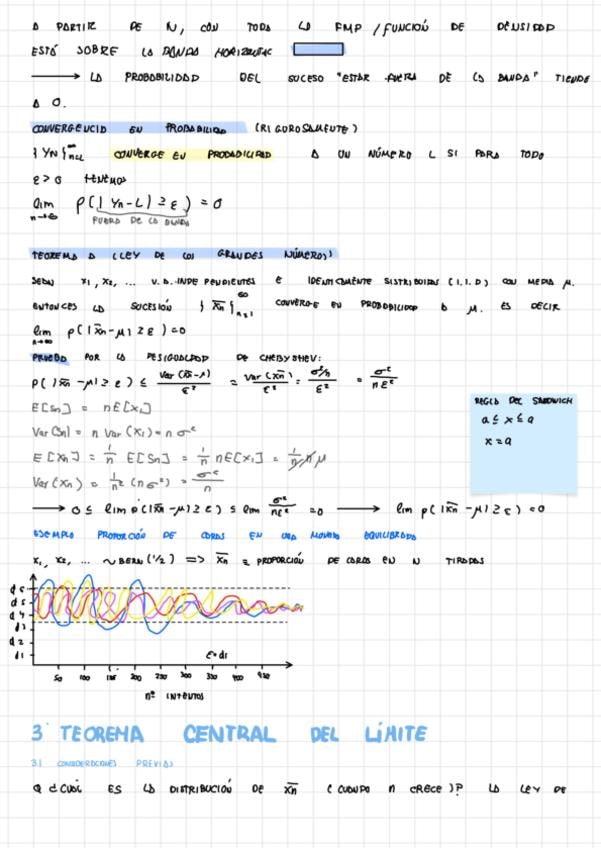 A PARTIR DE N, CON TODA LA FMP / FUNCIÓN DE DENSIDAD
ESTÁ SOBRE LA BANDA HORIZONTAL
⟶ LA PROBABILIDAD DEL SUCESO "ESTAR FUERA DE LA BANDA" TIENDE
A 0.
CONVERGENCIA EN PROBABILIDAD (RIGUROSAMENTE)
{Yn}ₙ₌₁ CONVERGE EN PROBABILIDAD A UN NÚMERO L SI PARA TODO
ε>0 TENEMOS
lim n→∞ P(|Yn-L| ≥ ε) = 0
FUERA DE LA BANDA
TEOREMA A (LEY DE LOS GRANDES NÚMEROS)
SEAN x₁, x₂, ... V.A. INDEPENDIENTES E IDENTICAMENTE DISTRIBUIDAS (I.I.D) CON MEDIA μ.
ENTONCES LA SUCESIÓN {x̄n}∞ₙ₌₁ CONVERGE EN PROBABILIDAD A μ. ES DECIR
lim n→∞ P(|x̄n-μ| ≥ ε) = 0
PRUEBA POR LA DESIGUALDAD DE CHEBYSHEV:
P(|x̄n-μ| ≥ ε) ≤ Var(x̄n-μ)/ε² = Var(x̄n)/ε² = σ²/n/ε² = σ²/nε²
E[Sn] = nE[x₁]
Var(Sn) = n Var(x₁) = n σ²
E[x̄n] = 1/n E[Sn] = 1/n nE[x₁] = 1/n n μ
Var(x̄n) = 1/n² (nσ²) = σ²/n
⟶ 0 ≤ lim P(|x̄n-μ| ≥ ε) ≤ lim σ²/nε² = 0 ⟶ lim P(|x̄n-μ| ≥ ε) = 0
REGLA DEL SANDWICH
a ≤ x ≤ a
x = a
EJEMPLO PROPORCIÓN DE CARAS EN UNA MONEDA EQUILIBRADA
x₁, x₂, ... ~ BERN(1/2) => x̄n = PROPORCIÓN DE CARAS EN N TIRADAS
d6
d5
d4
d3
d2
d1
ε=d1
50 100 150 200 250 300 350 400 450
nº INTENTOS
3 TEOREMA CENTRAL DEL LÍMITE
3.1 CONSIDERACIONES PREVIAS
Q ¿CUÁL ES LA DISTRIBUCIÓN DE x̄n (CUANDO n CRECE)? LA LEY DE